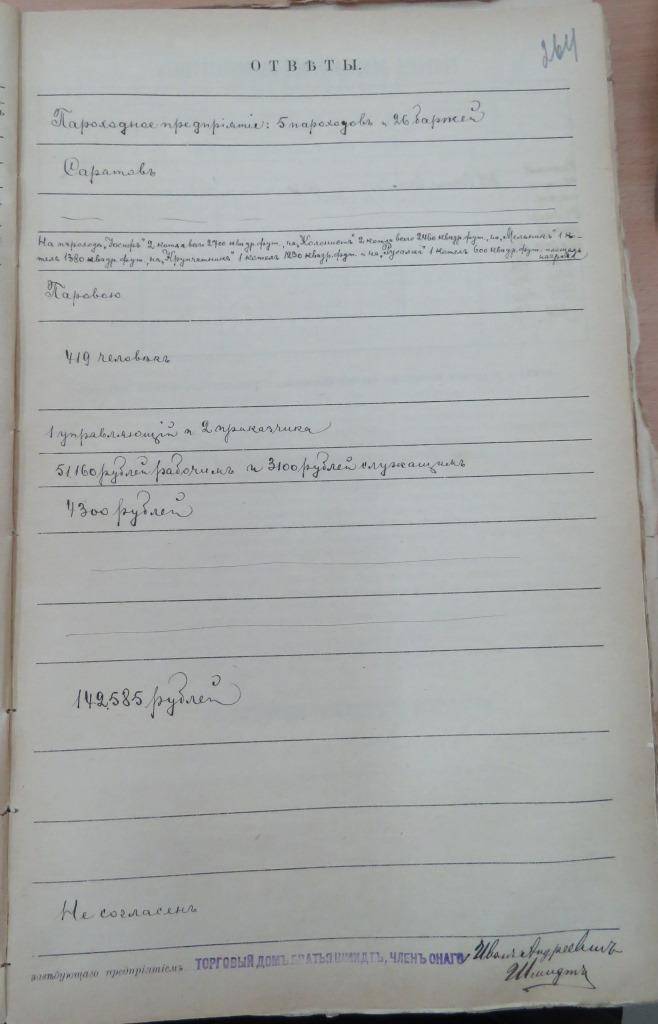 264
ОТВѢТЫ.
Пароходное предпріятіе: 5 пароходовъ и 26 баржей
Саратовъ
На пароходѣ „Іосифъ" 2 котла всего 2700 квадр. фут., на „Колонистъ" 2 котла всего 2460 квадр. фут., на „Мельникъ" 1 ко-
телъ 1380 квадр. фут., на „Крупчатникъ" 1 котелъ 1230 квадр. фут. и на „Русалка" 1 котелъ 600 квадр. фут. площадь
нагрѣва
Паровою
419 человѣкъ
1 управляющій и 2 приказчика
51160 рублей рабочимъ и 3100 рублей служащимъ
4300 рублей
142.585 рублей
Не согласенъ
завѣдующаго предпріятіемъ ТОРГОВЫЙ ДОМЪ БРАТЬЯ ШМИДТЪ, ЧЛЕНЪ ОНАГО Иванъ Андреевичъ
Шмидтъ